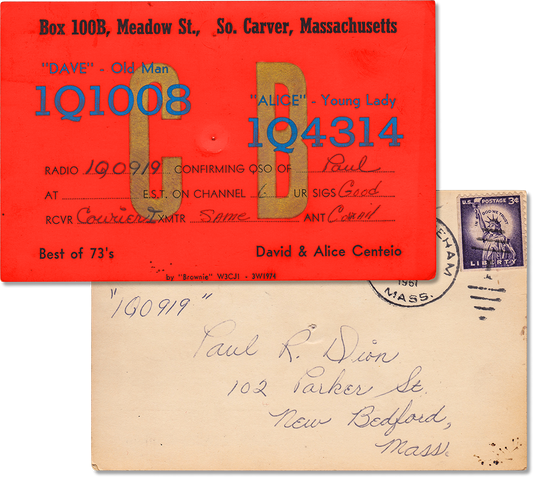 Box 100B, Meadow St., So. Carver, Massachusetts
"DAVE" - Old Man
1Q1008
"ALICE" - Young Lady
1Q4314
C B
RADIO 1Q0919 CONFIRMING QSO OF Paul
AT E.S.T. ON CHANNEL 6 UR SIGS Good
RCVR Courier I XMTR Same ANT Coaxil
Best of 73's David & Alice Centeio
by "Brownie" W3CJI - 3W1974
EHAM
1961
MASS.
U.S. POSTAGE 3¢
IN GOD WE TRUST
LIBERTY
"1Q0919"
Paul R. Dion
102 Parker St.
New Bedford,
Mass.